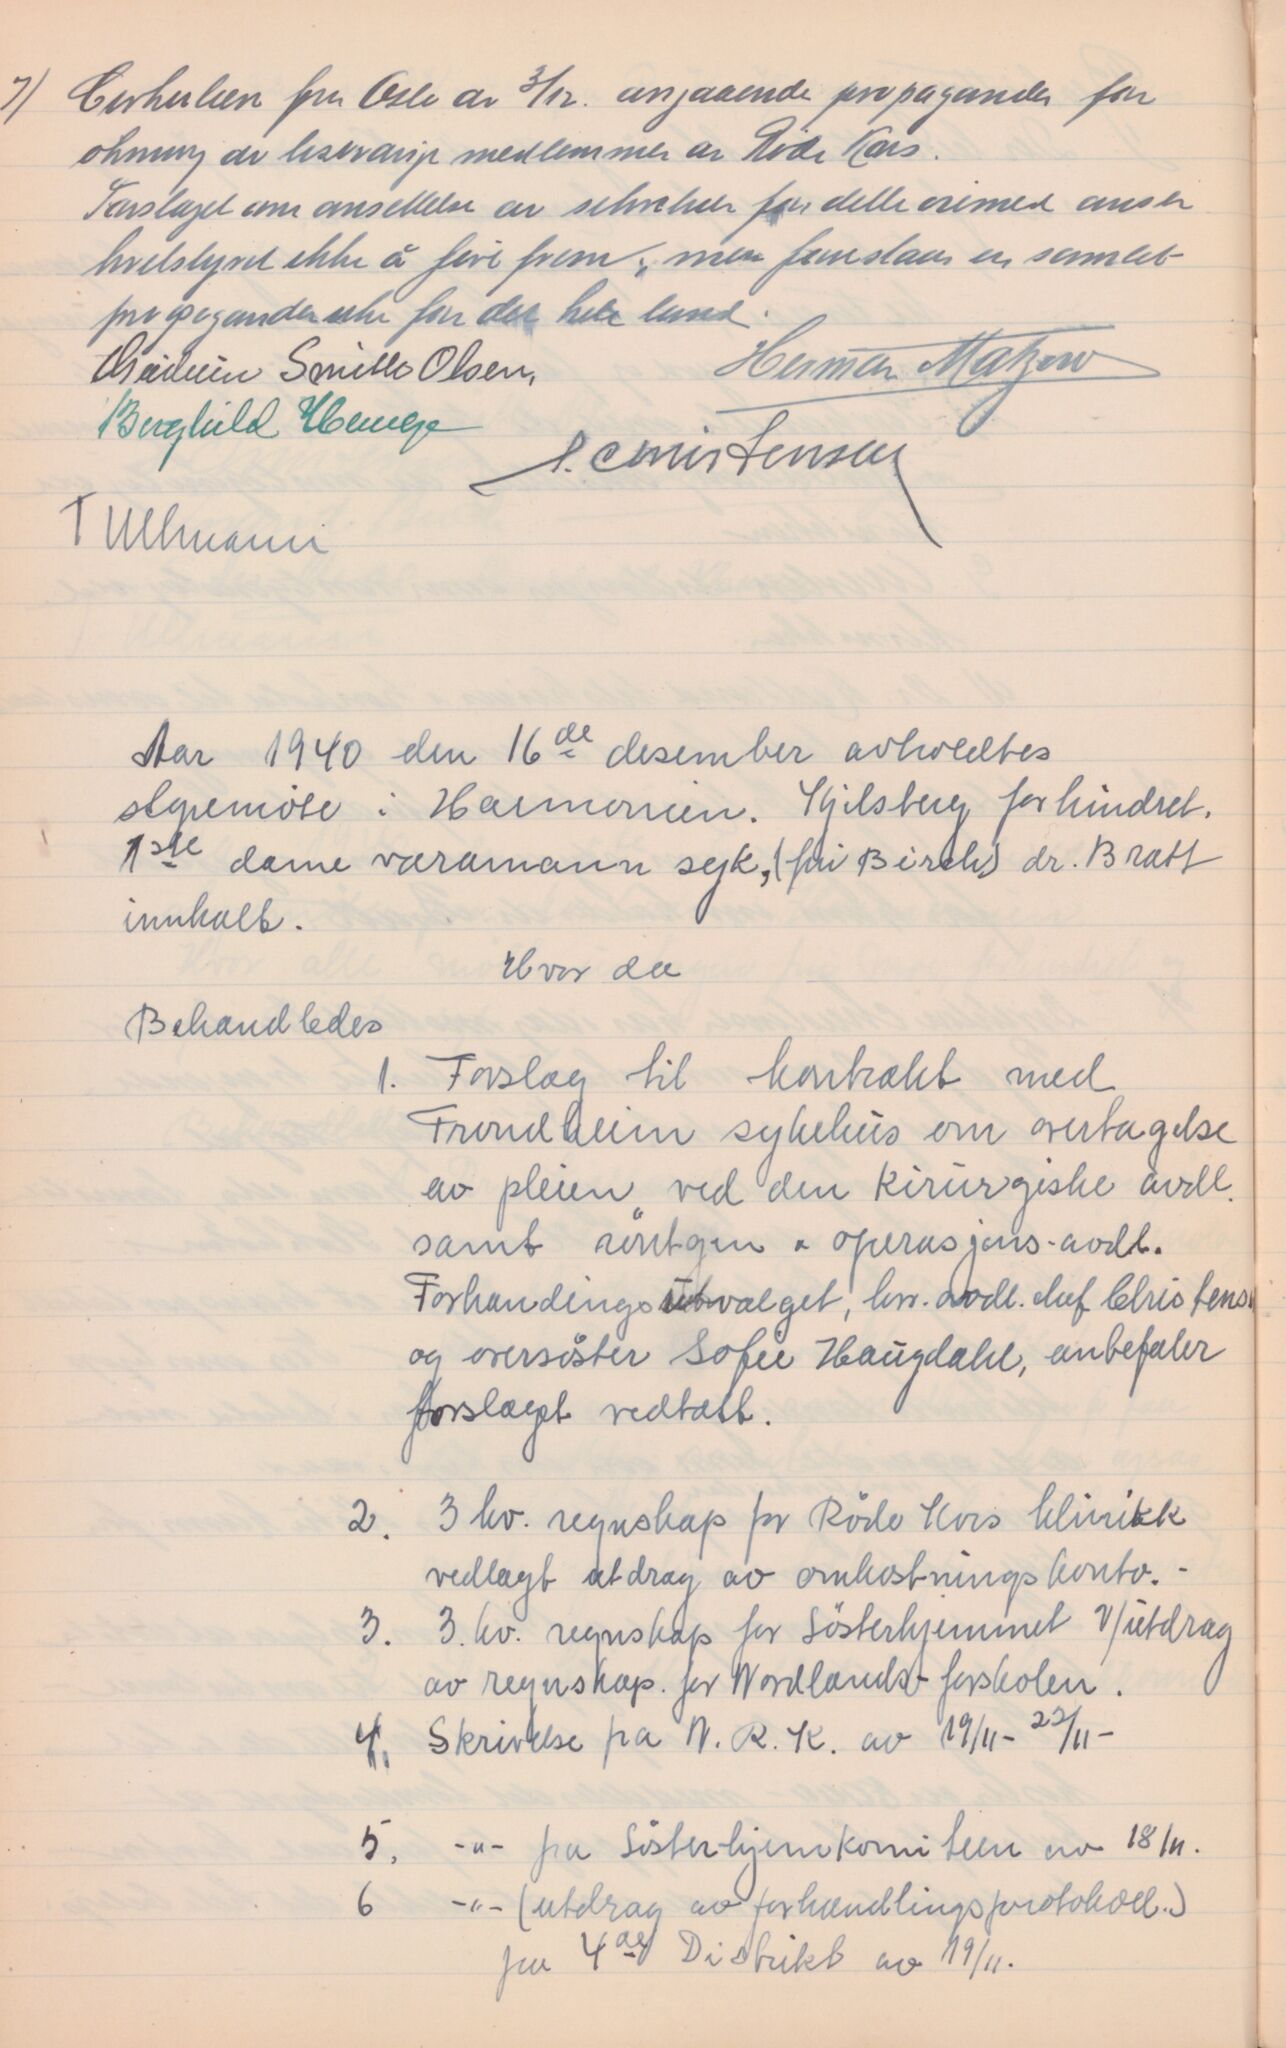 7) Cirkulære fra Oslo av 3/12. angaaende propaganda for
økning av livsvarige medlemmer av Røde Kors.
Forslaget om ansettelse av sekretær for dette øiemed anser
kretsstyret ikke å føre frem, men foreslaar en samlet
propagandauke for det hele land.
Smitt Olsen,
Herman Matzow
Borghild
S. Christensen
T Ullmann
Aar 1940 den 16de desember avholdtes
styremöte i Harmonien. Kjelsberg forhindret.
1ste dame varamann syk, (fru Birch) dr. Bratt
innkalt.
Hvor da
Behandledes
1. Forslag til kontrakt med
Trondheim sykehus om overtagelse
av pleien ved den kirurgiske avdl.
samt röntgen " operasjons-avdl.
Forhandingsutvalget, hrr. avdl. chef Christensen
og oversöster Sofie Haugdahl, anbefaler
forslaget vedtatt.
2. 3 kv. regnskap for Röde Kors klinikk
vedlagt utdrag av omkostningskonto. -
3. 3. kv. regnskap for Sösterhjemmet v/utdrag
av regnskap for Nordlands-forskolen.
4. Skrivelse fra N. R. K. av 19/11 - 22/11 -
5. -"- fra Sösterhjemkomiteen av 18/11.
6 -"- (utdrag av forhandlingsprotokoll.)
fra 4de Distrikt av 19/11.